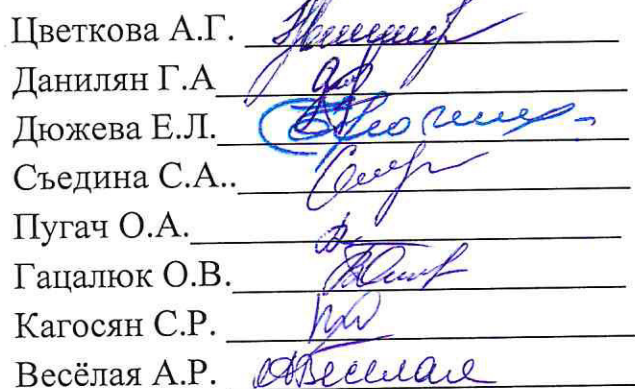 Цветкова А.Г.
Данилян Г.А
Дюжева Е.Л.
Съедина С.А..
Пугач О.А.
Гацалюк О.В.
Кагосян С.Р.
Весёлая А.Р. АВеселая